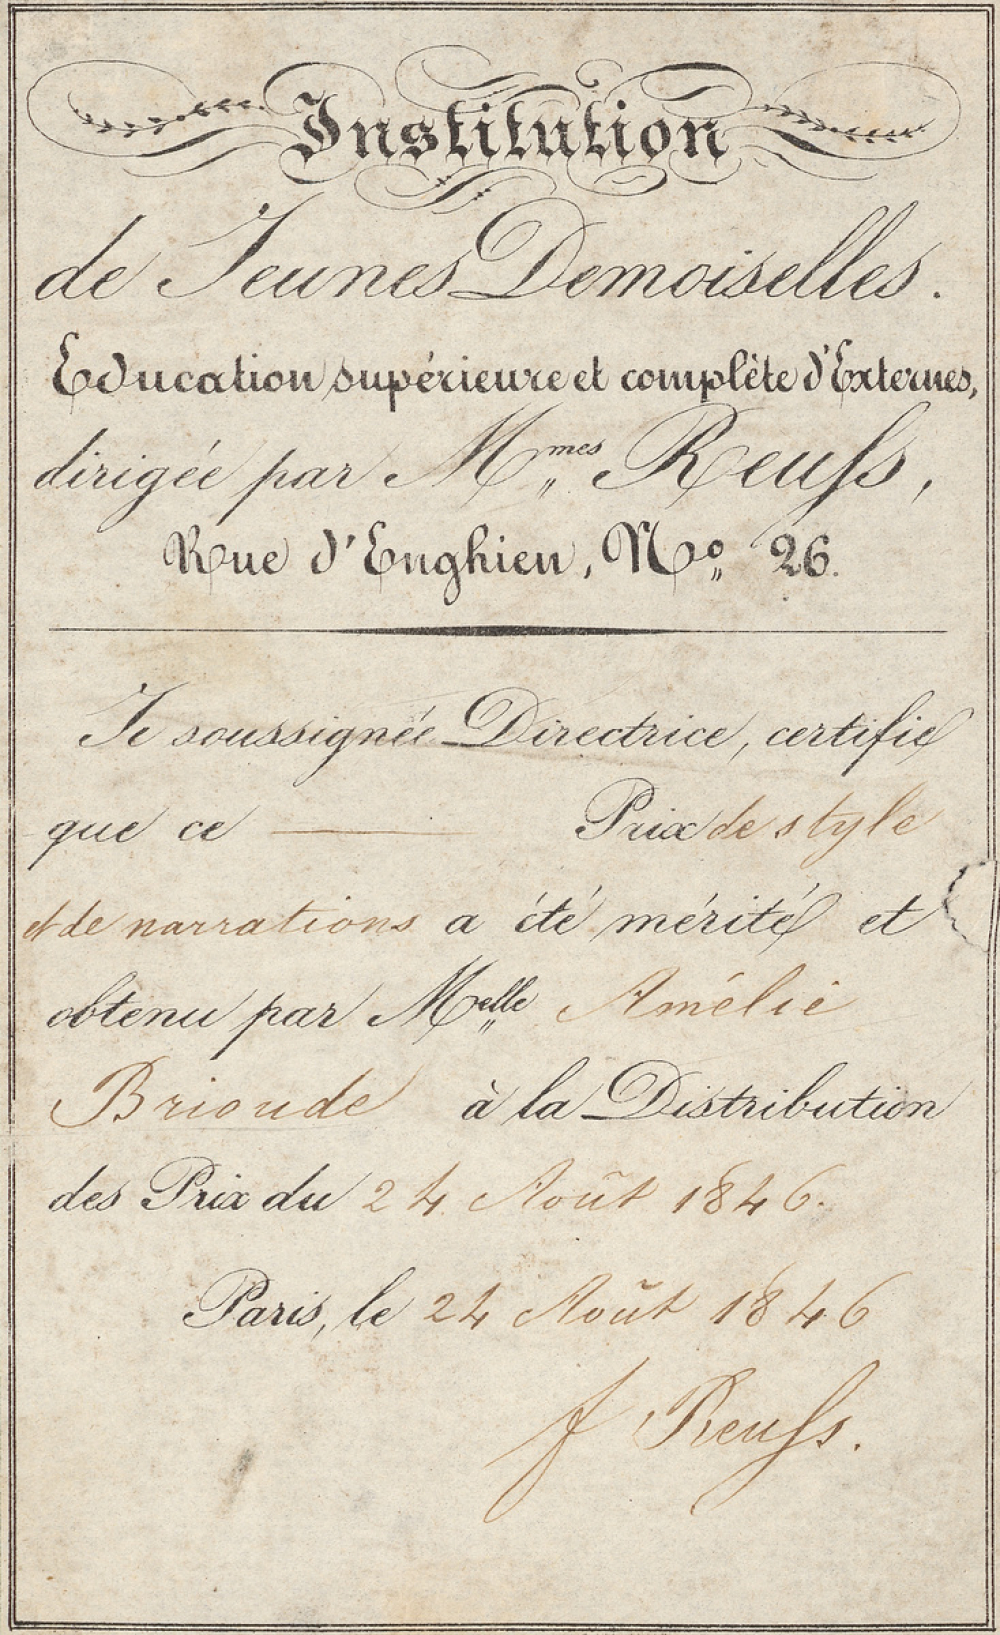 Institution
de Jeunes Demoiselles.
Education supérieure et complète d'Externes,
dirigée par M.mes Reuſs,
Rue d'Enghien, No. 26.
Je soussignée Directrice, certifie
que ce ——— Prix de style
et de narrations a été mérité et
obtenu par Melle Amélie
Brioude à la Distribution
des Prix du 24 Août 1846.
Paris, le 24 Août 1846
f Reuſs.